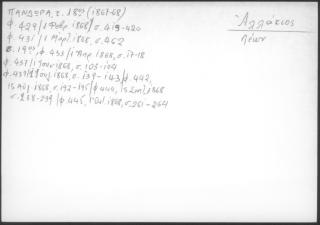 ΠΑΝΔΩΡΑ, τ. 18ος (1867-68)
φ. 429/1 Φεβρ. 1868/ σ. 419-420
φ. 431/1 Μαρτ. 1868, σ. 462
τ. 19ος, φ. 433/1 Απρ. 1868, σ. 17-18
φ. 437/1 Ιουν 1868, σ. 103-104
φ. 439/1 Ιουλ 1868, σ. 139-143/φ. 442,
15 Αύγ. 1868, σ. 192-195/φ. 444, 15 Σεπτ. 1868
σ. 238-239/φ. 445, 1 Οκτ 1868, σ. 261-264
Ἀλλάτιος
Λέων